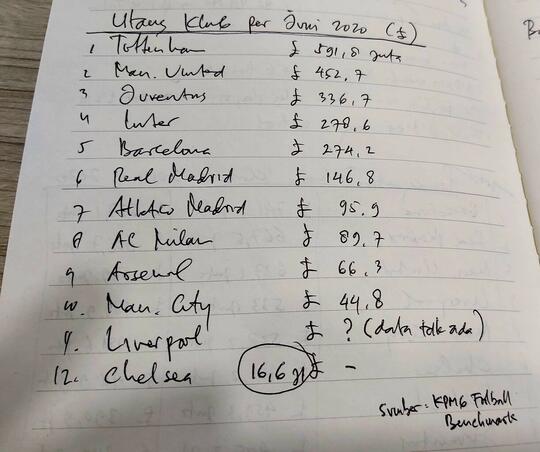 Utang Klub per Juni 2020 (£)
1 Tottenham £ 591,8 juta
2 Man. United £ 452,7
3 Juventus £ 336,7
4 Inter £ 278,6
5 Barcelona £ 274,2
6 Real Madrid £ 146,8
7 Atletico Madrid £ 95.9
8 AC Milan £ 89,7
9 Arsenal £ 66,3
10. Man. City £ 44,8
11. Liverpool £ ? (data tdk ada)
12. Chelsea 16,6 jt £ -
Sumber: KPMG Football
Benchmark